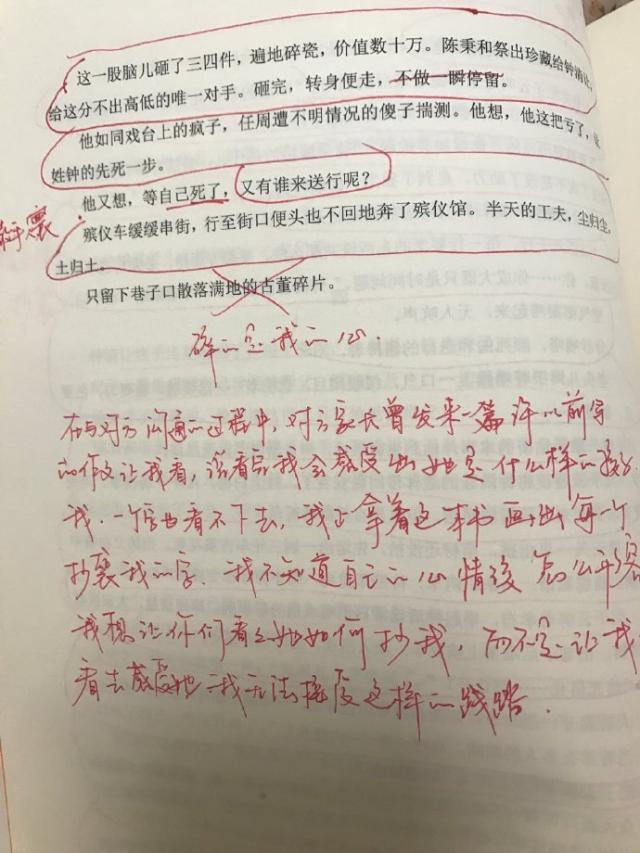 这一股脑儿砸了三四件，遍地碎瓷，价值数十万。陈秉和祭出珍藏给钟
给这分不出高低的唯一对手。砸完，转身便走，不做一瞬停留。
他如同戏台上的疯子，任周遭不明情况的傻子揣测。他想，他这把亏了，
姓钟的先死一步。
他又想，等自己死了，又有谁来送行呢？
抄袭
殡仪车缓缓串街，行至街口便头也不回地奔了殡仪馆。半天的工夫，尘归尘，
土归土。
只留下巷子口散落满地的古董碎片。
碎的是我的心.
在与对方沟通的过程中，对方家长曾发来一篇许以前写
的作文让我看，说看完我会感受出她是什么样的孩子
我，一个字也看不下去，我正拿着这本书画出每一个
抄袭我的字. 我不知道自己的心情该怎么平
我想让你们看看她如何抄我，而不是让我
看去感受她 我无法接受这样的践踏.